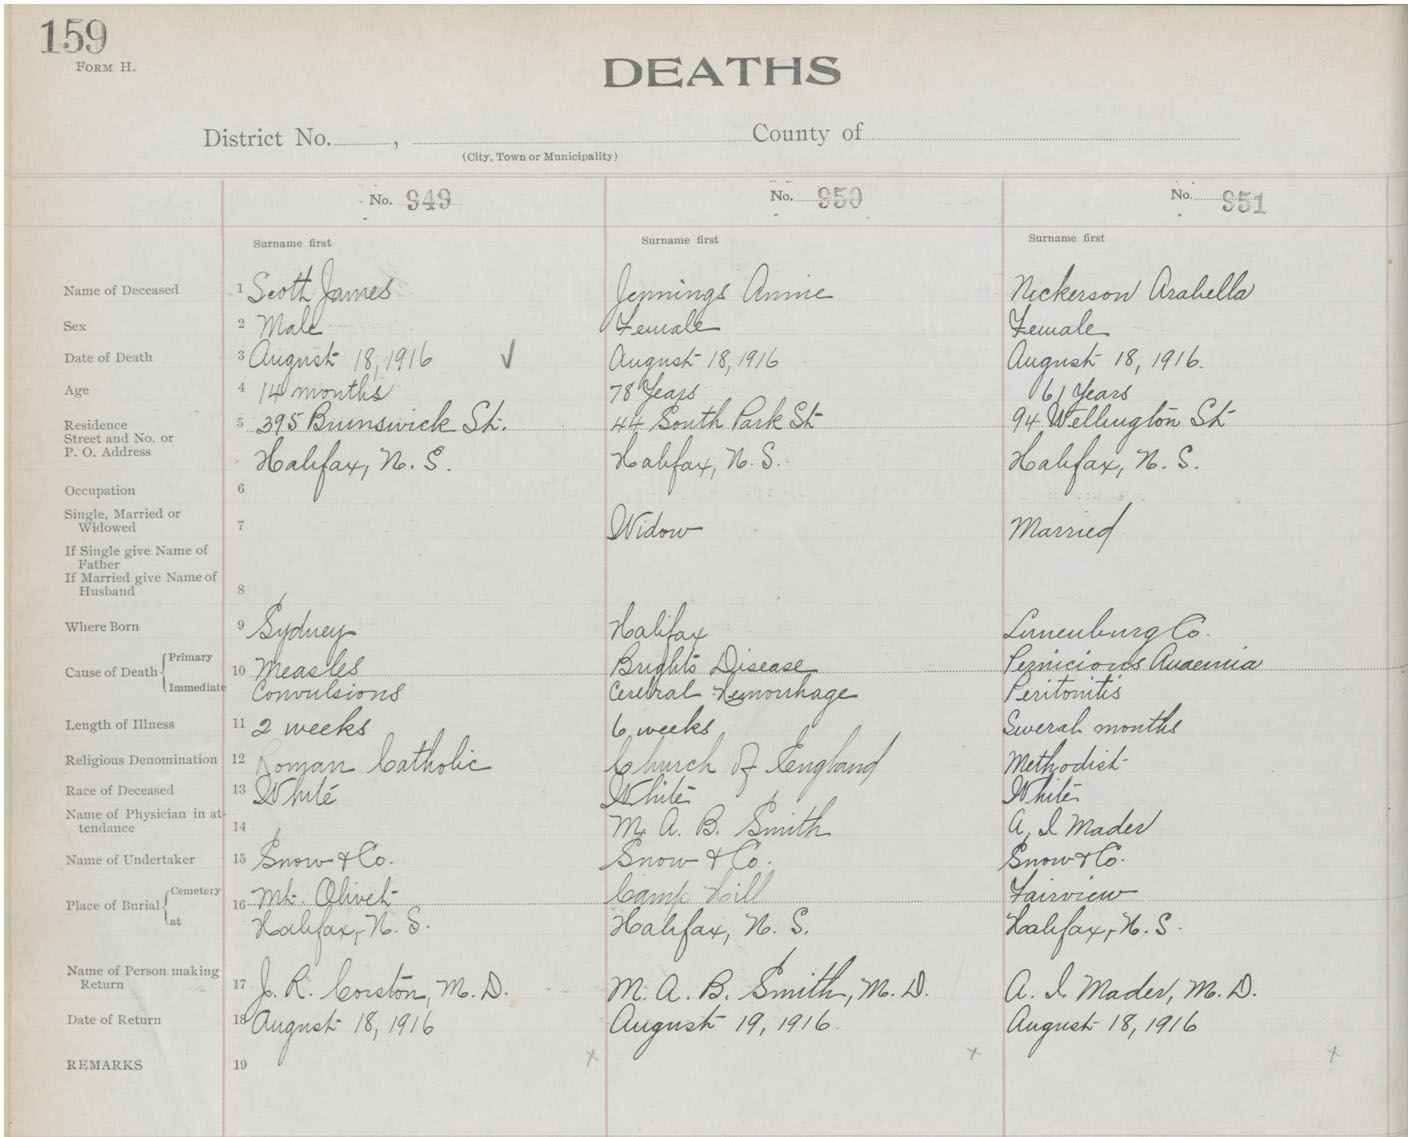 159
FORM H.
DEATHS
District No. , County of
(City, Town or Municipality)
No. 949 No. 950 No. 951
Surname first Surname first Surname first
Name of Deceased 1 Scott James Jennings Annie Nickerson Arabella
Sex 2 Male Female Female
Date of Death 3 August 18, 1916 ✓ August 18, 1916 August 18, 1916.
Age 4 14 months 78 Years 61 Years
Residence 5 395 Brunswick St. 44 South Park St 94 Wellington St
Street and No. or
P. O. Address Halifax, N. S. Halifax, N. S. Halifax, N. S.
Occupation 6
Single, Married or
Widowed 7 Widow Married
If Single give Name of
Father
If Married give Name of
Husband 8
Where Born 9 Sydney Halifax Lunenburg Co.
Primary
Cause of Death 10 Measles Brights Disease Pernicious Anaemia
Immediate Convulsions Cerebral Hemorrhage Peritonitis
Length of Illness 11 2 weeks 6 weeks Several months
Religious Denomination 12 Roman Catholic Church of England Methodist
Race of Deceased 13 White White White
Name of Physician in at-
tendance 14 M. A. B. Smith A. I. Mader
Name of Undertaker 15 Snow & Co. Snow & Co. Snow & Co.
Cemetery
Place of Burial 16 Mt. Olivet Camp Hill Fairview
at Halifax, N. S. Halifax, N. S. Halifax, N. S.
Name of Person making
Return 17 J. R. Corston, M. D. M. A. B. Smith, M. D. A. I. Mader, M. D.
Date of Return 18 August 18, 1916 August 19, 1916. August 18, 1916
REMARKS 19 x x x